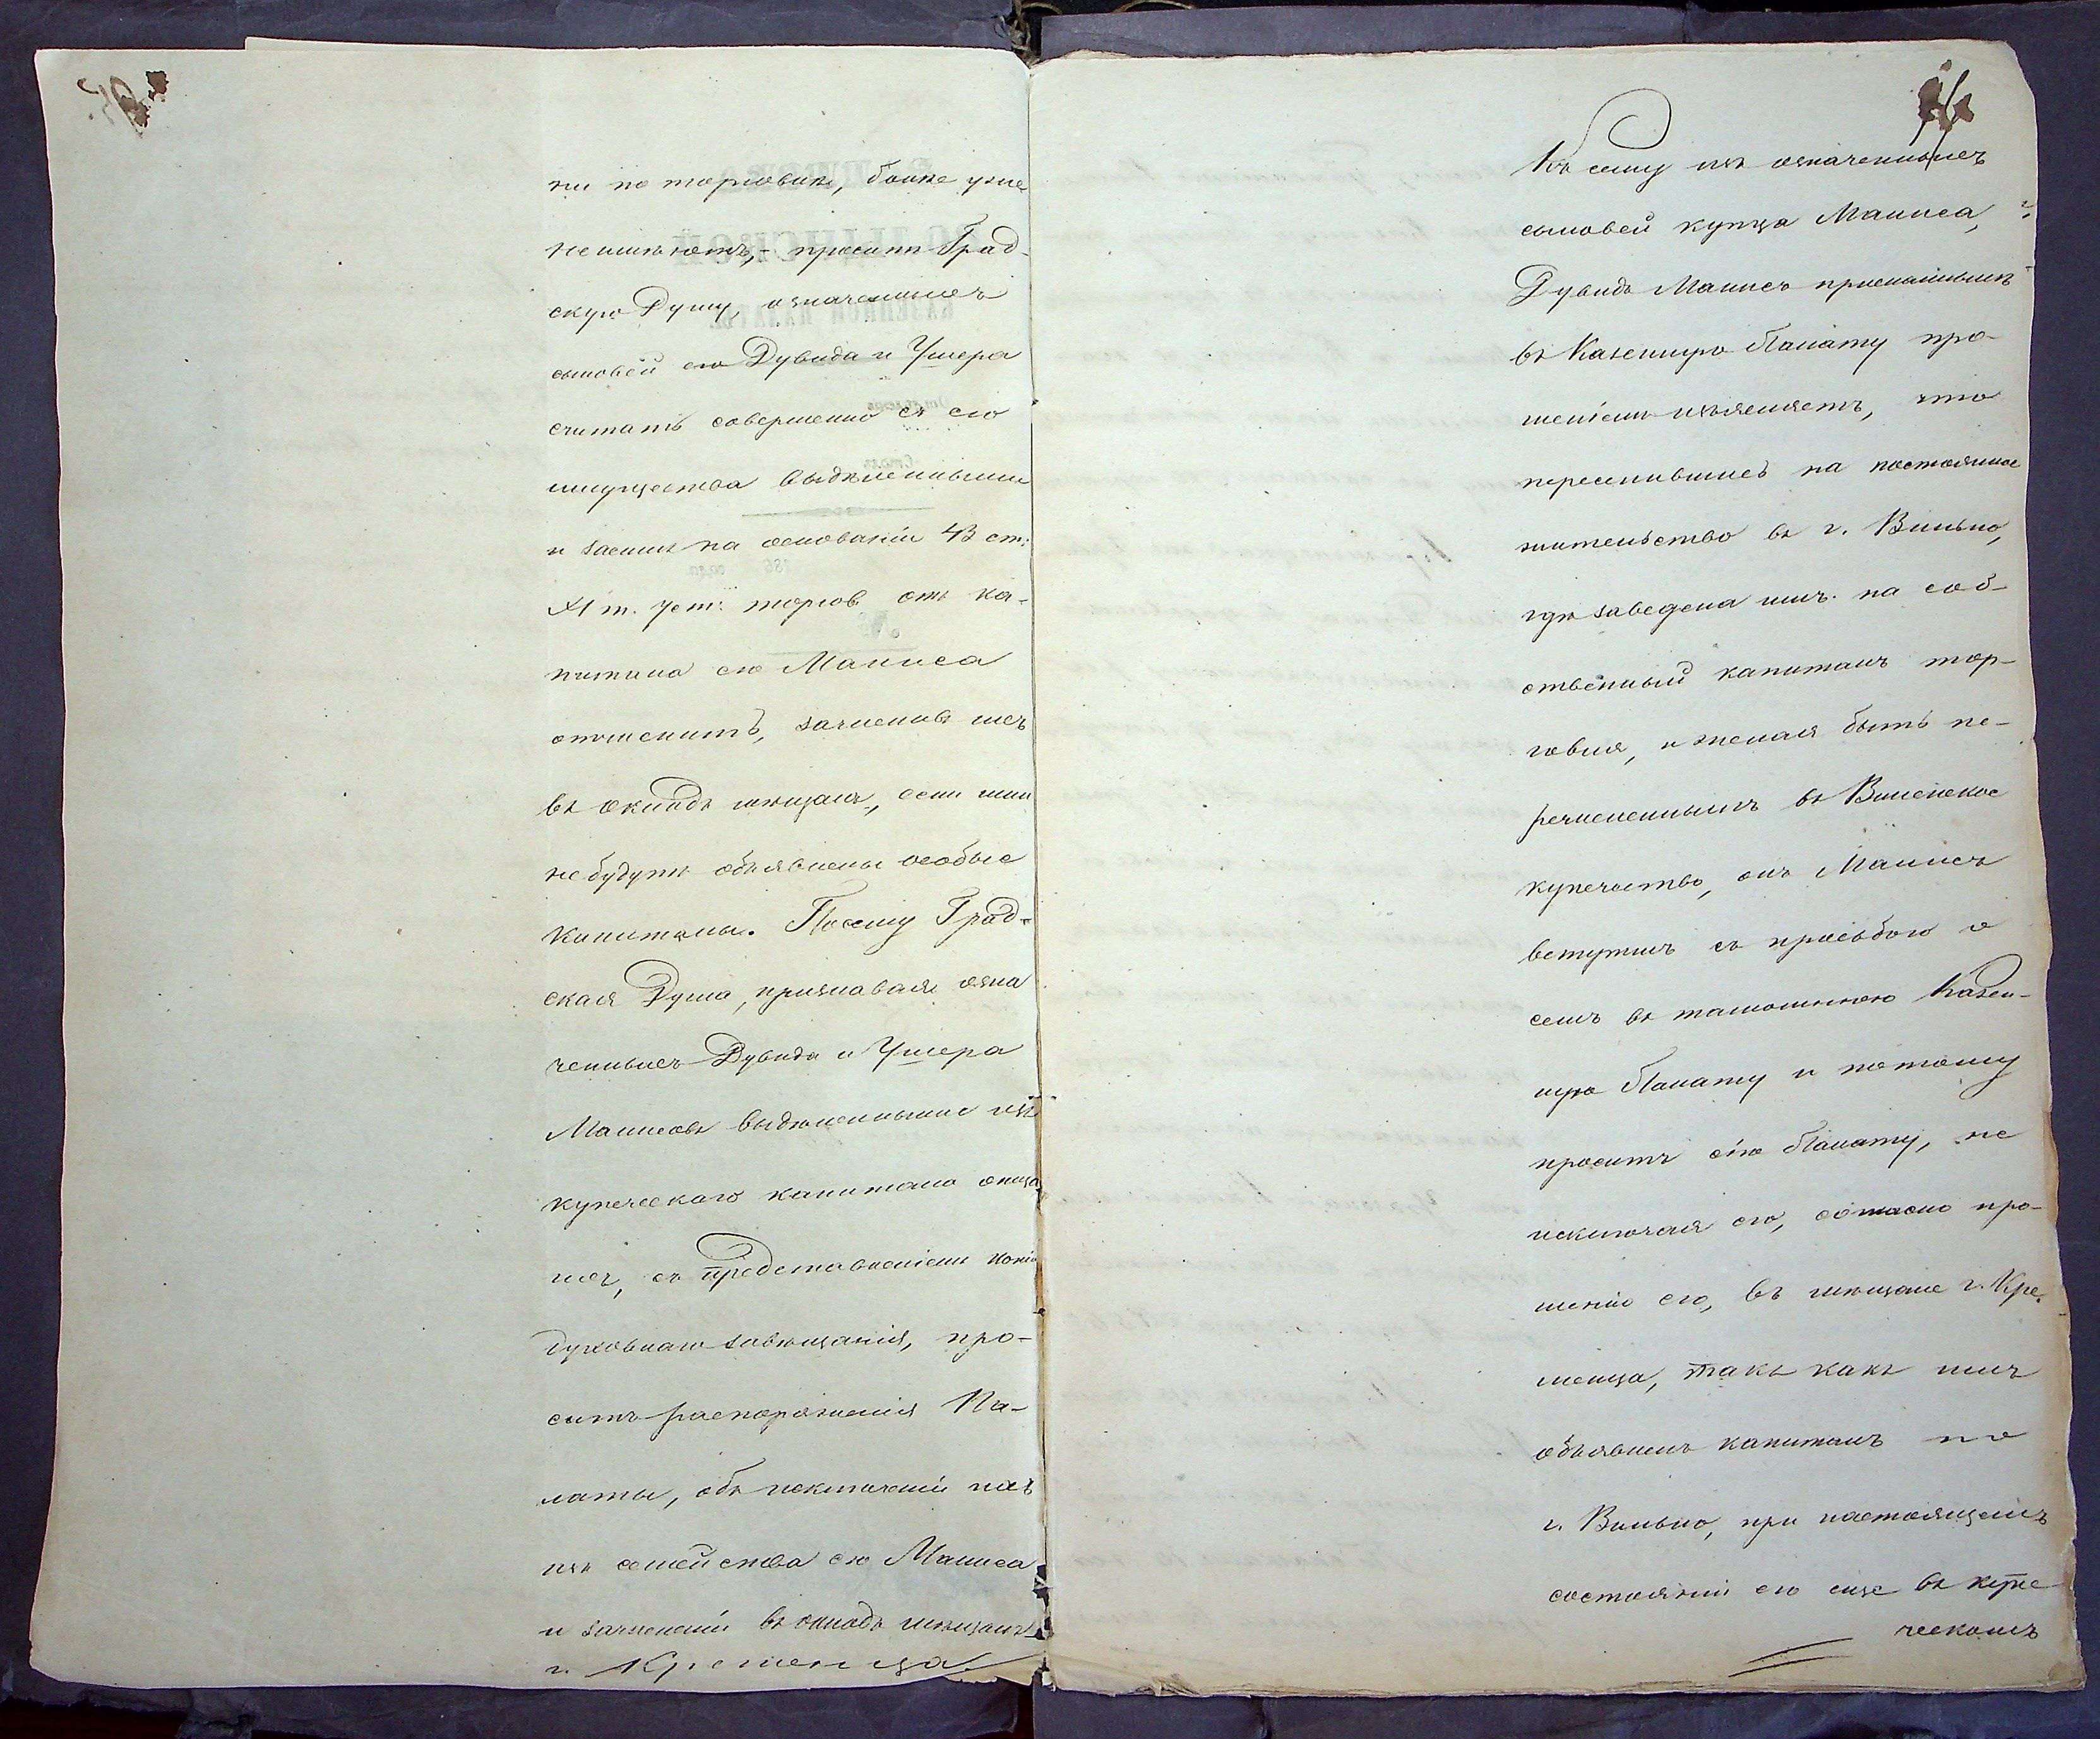 ни по торговли, болѣе уже
не имѣютъ, – проситъ Град-
скую Думу, означенныхъ
сыновей его Дувида и Умера
считать совершенно съ его
имущества выдѣленными
и засимъ на основаніи 43 ст:
XI т. уст: торгов. отъ ка-
питала его Маниса
отчислить, зачисливъ ихъ
въ окладъ мѣщанъ, если ими
не будутъ объявлены особые
капиталы. Посему Град-
ская Дума, признавая озна
ченныхъ Дувида и Умера
Манисовъ выдѣленными изъ
купеческаго капитала отца
ихъ, съ представленіемъ копіи
духовнаго завѣщанія, про-
ситъ распоряженія Па-
латы, объ исключеніи ихъ
изъ семейства его Маниса
и зачисленіи въ окладъ мѣщанъ
г. Кременца
Къ сему изъ означенныхъ
сыновей купца Маниса,
Дувидъ Манисъ присланнымъ
въ Казенную Палату про-
шеніемъ изъясняетъ, что
переселившись на постоянное
жительство въ г. Вильно,
гдѣ заведена имъ на соб-
ственный капиталъ тор-
говля, и желая быть пе-
речисленнымъ въ Виленское
купечество, онъ Манисъ
вступилъ съ просьбою о
семъ въ тамошнюю Казен-
ную Палату и потому
проситъ сію Палату, не
исключая его, согласно про-
шенію его, въ мѣщане г. Кре-
менца, такъ какъ имъ
объявленъ капиталъ по
г. Вильно, при настоящемъ
состояніи его еще въ купе-
ческомъ